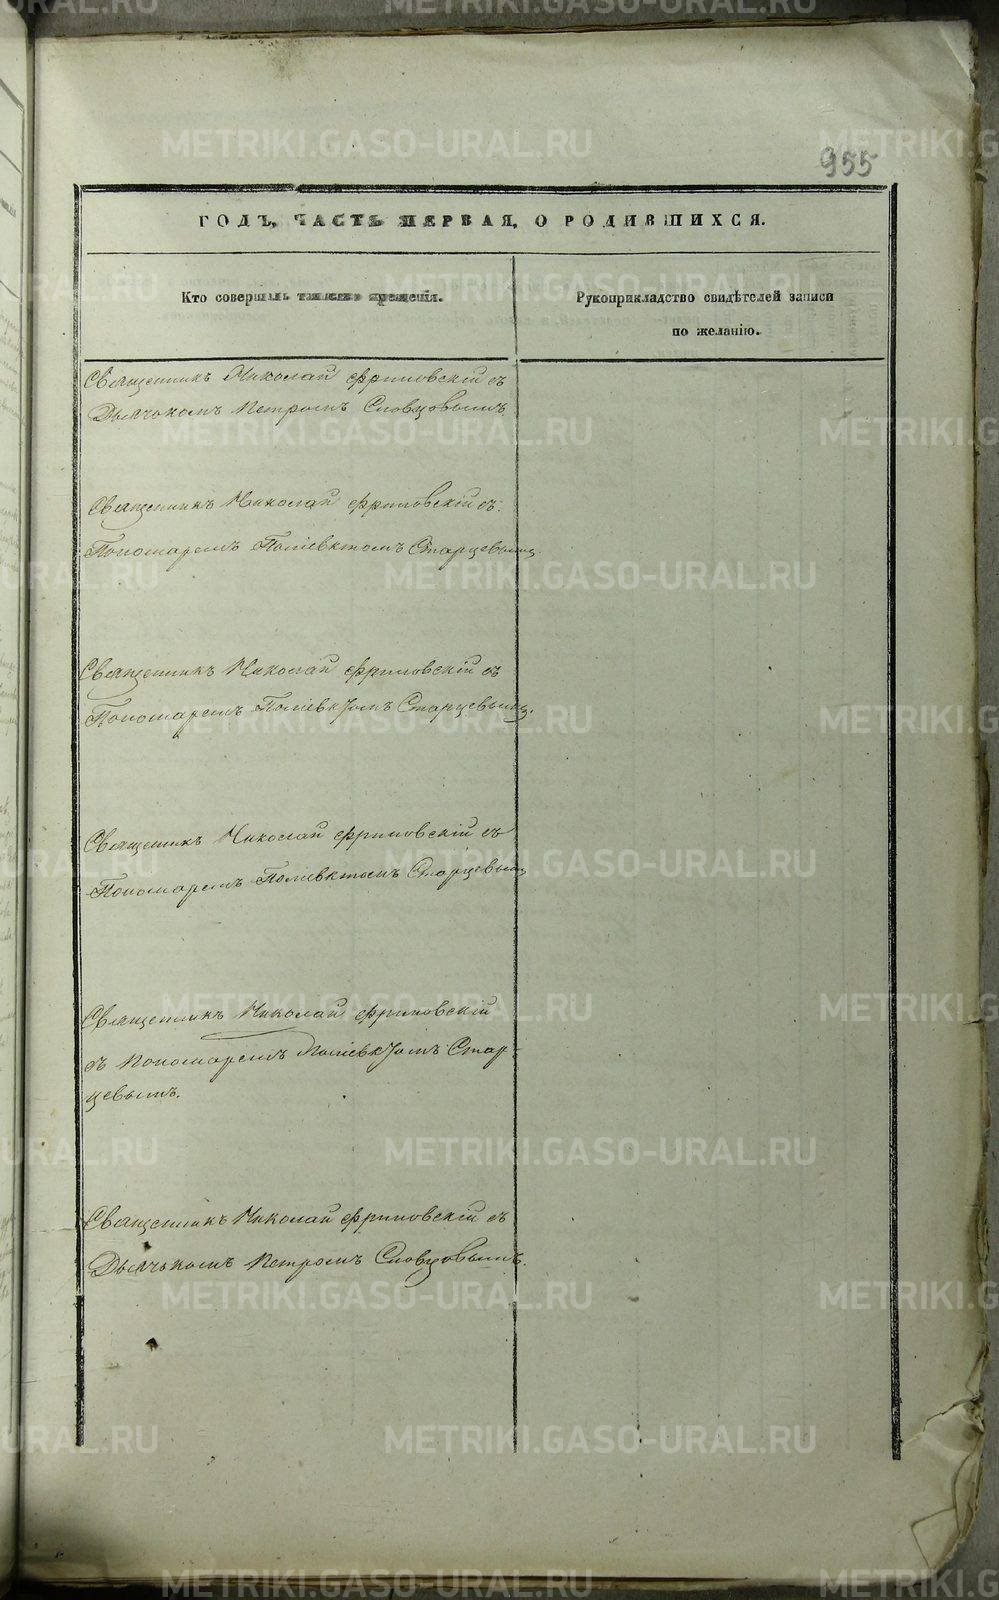 955
ГОДЪ, ЧАСТЬ ПЕРВАЯ, О РОДИВШИХСЯ.
Кто совершалъ таинство крещенія.
Рукоприкладство свидѣтелей записи
по желанію.
Священникъ Николай Фриновскій съ
Дьячкомъ Петромъ Словцовымъ
Священникъ Николай Фриновскій съ
Пономаремъ Поліевктомъ Старцевымъ
Священникъ Николай Фриновскій съ
Пономаремъ Поліевктомъ Старцевымъ.
Священникъ Николай Фриновскій съ
Пономаремъ Поліевктомъ Старцевымъ
Священникъ Николай Фриновскій
съ Пономаремъ Поліевктомъ Стар-
цевымъ.
Священникъ Николай Фриновскій съ
Дьячкомъ Петромъ Словцовымъ.
METRIKI.GASO-URAL.RU